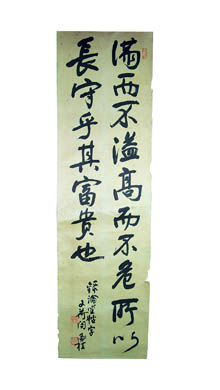 满而不溢高而不危所以
長守乎其富貴也